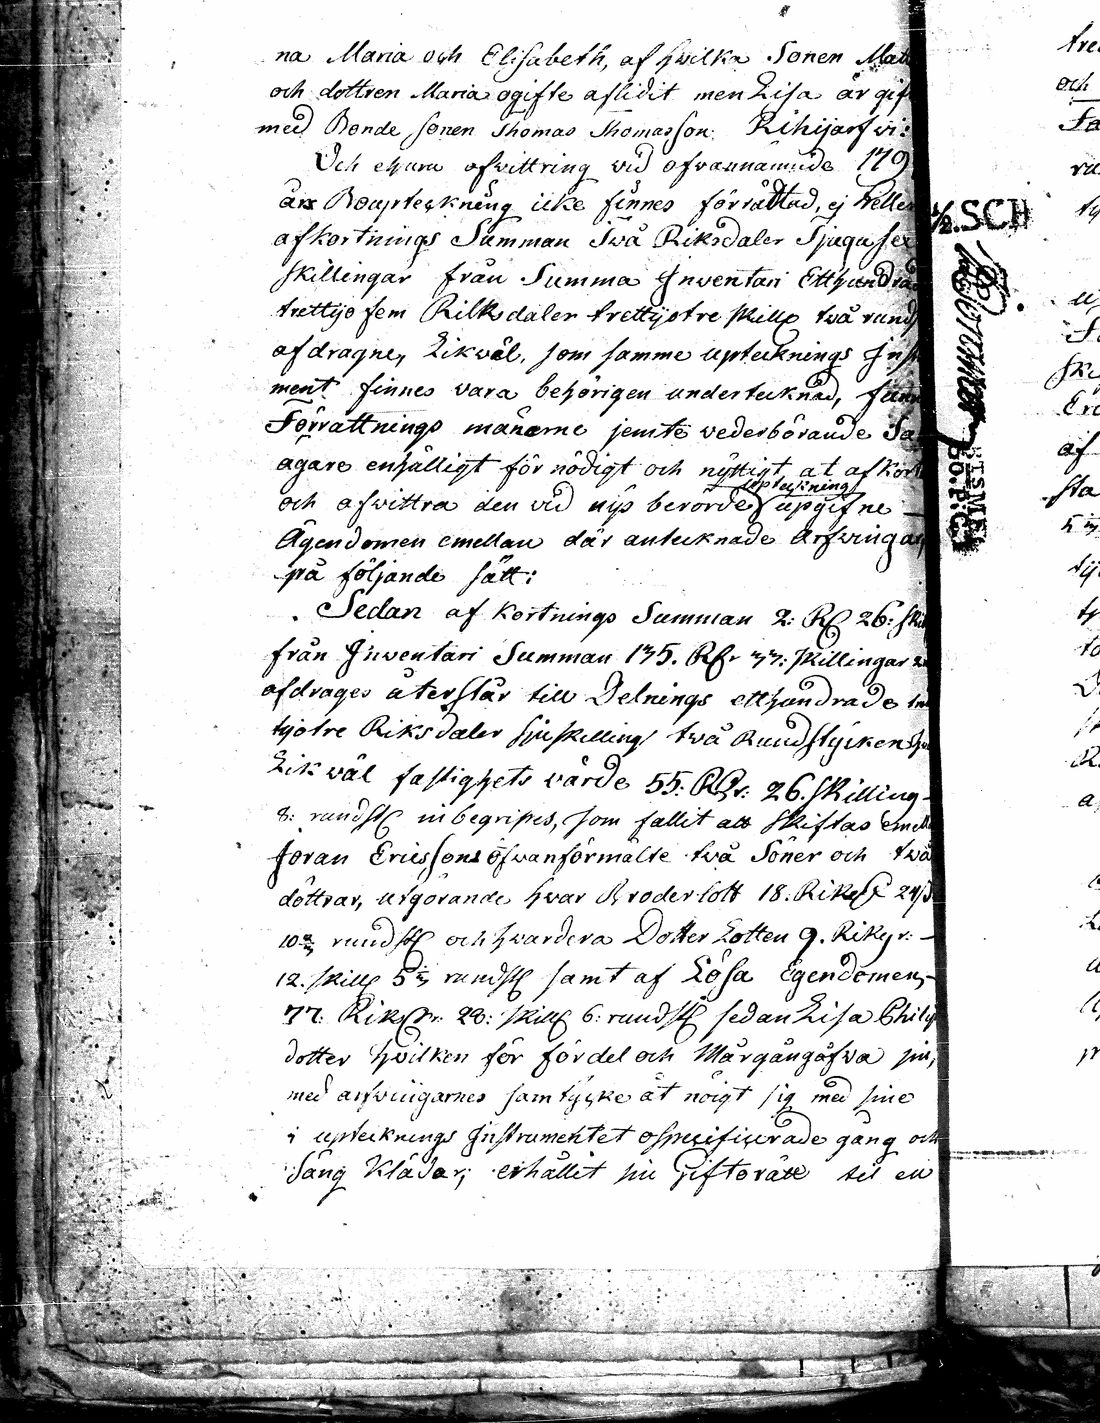 na Maria och Elisabeth, af hwilka Sonen Mat
och dottren Maria ogifte aflidit men Lisa är gif
med Bonde sonen Thomas Thomasson Rihijarfwi:
Och ehuru afwittring vid ofvannämnde 179
års Bouptekning icke finnes förrättad, ej heller
afkortnings Summan Två Riksdaler Tjugusex
skillingar från Summa Inventari Etthundrade
trettijo fem Riksdaler trettijotre skill twå runds
afdragne, Likväl, som samme uptecknings Inst
ment finnes vara behörigen undertecknad, funn
Förrättnings männerne jemte vederbörande Sa
ägare enhälligt för nödigt och nyttigt at afkort
uptekning
och afwittra den vid nijs berörde upgifne
Ägendomen emellan där antecknade Arfwingar
på följande sätt:
Sedan afkortnings Summan 2: Rd 26: skil
från Inventari Summan 135. Rdr 33: skillingar 2
afdrages återstår till Delnings etthundrade tre
tijotre Riksdaler sju skilling twå Rundstÿcken
Likwäl fastighets wärde 55: Rdr: 26. skilling
8: rundst inbegripes, som fallit att skiftas emell
Jöran Ericssons ofwanförmälte twå Söner och twå
döttrar, utgörande hwar Broder lott 18. Riksd 24
10 rundst och hwardera Dotter Lotten 9. Rikdr:
12. skill 5 rundst samt af Lösa Egendomen,
77: Riksdr. 28: skill 6: rundst sedan Lisa Philip
dotter hwilken för fördel och Mårgångåfwa sin,
med arfwingarnes samtÿcke åt nöigt sig med sine
i uptecknings Instrumentet ospecificerade gång och
Säng Kläder; erhållit sin Giftorätt til en